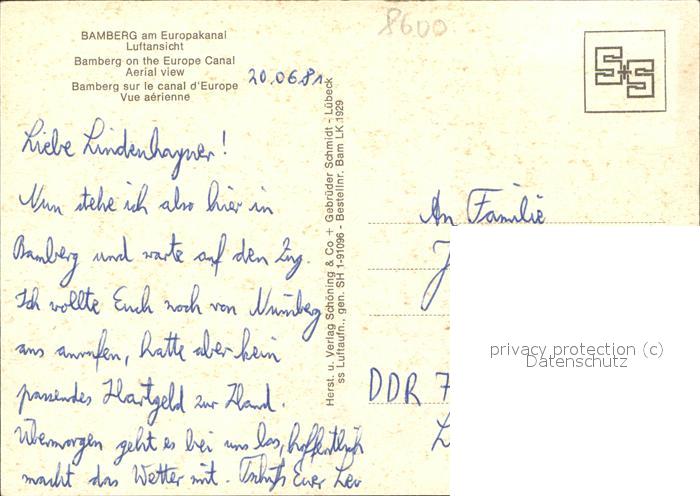 8600
BAMBERG am Europakanal
Luftansicht
Bamberg on the Europe Canal
Aerial view
Bamberg sur le canal d'Europe
Vue aérienne
20.06.81
S+S
Liebe Lindenhayner!
Nun stehe ich also hier in
Bamberg und warte auf den Zug.
Ich wollte Euch noch von Nürnberg
aus anrufen, hatte aber kein
passendes Hartgeld zur Hand.
Übermorgen geht es bei uns los, hoffentlich
macht das Wetter mit. Tschüß Euer
Herst. u. Verlag Schöning & Co + Gebrüder Schmidt - Lübeck
ss Luftaufn., gen. SH 1-91096 - Bestellnr. Bam LK 1929
An Familie
J
DDR 7
L
privacy protection (c)
Datenschutz